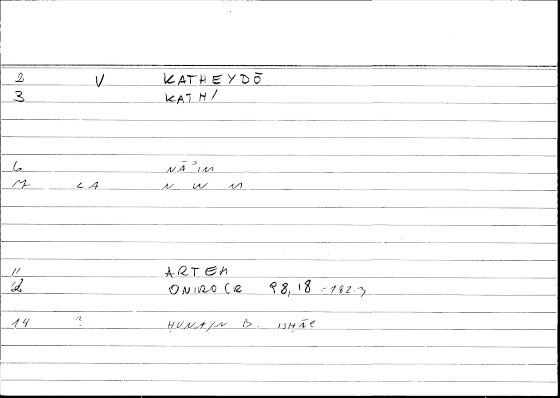 2 V KATHEYDŌ
3 KATH/
6 NĀʾIM
7 LA N W M
11 ARTEM
12 ONIROCR 98,18 = 182.3
14 ? ḤUNAYN B. ISHĀC